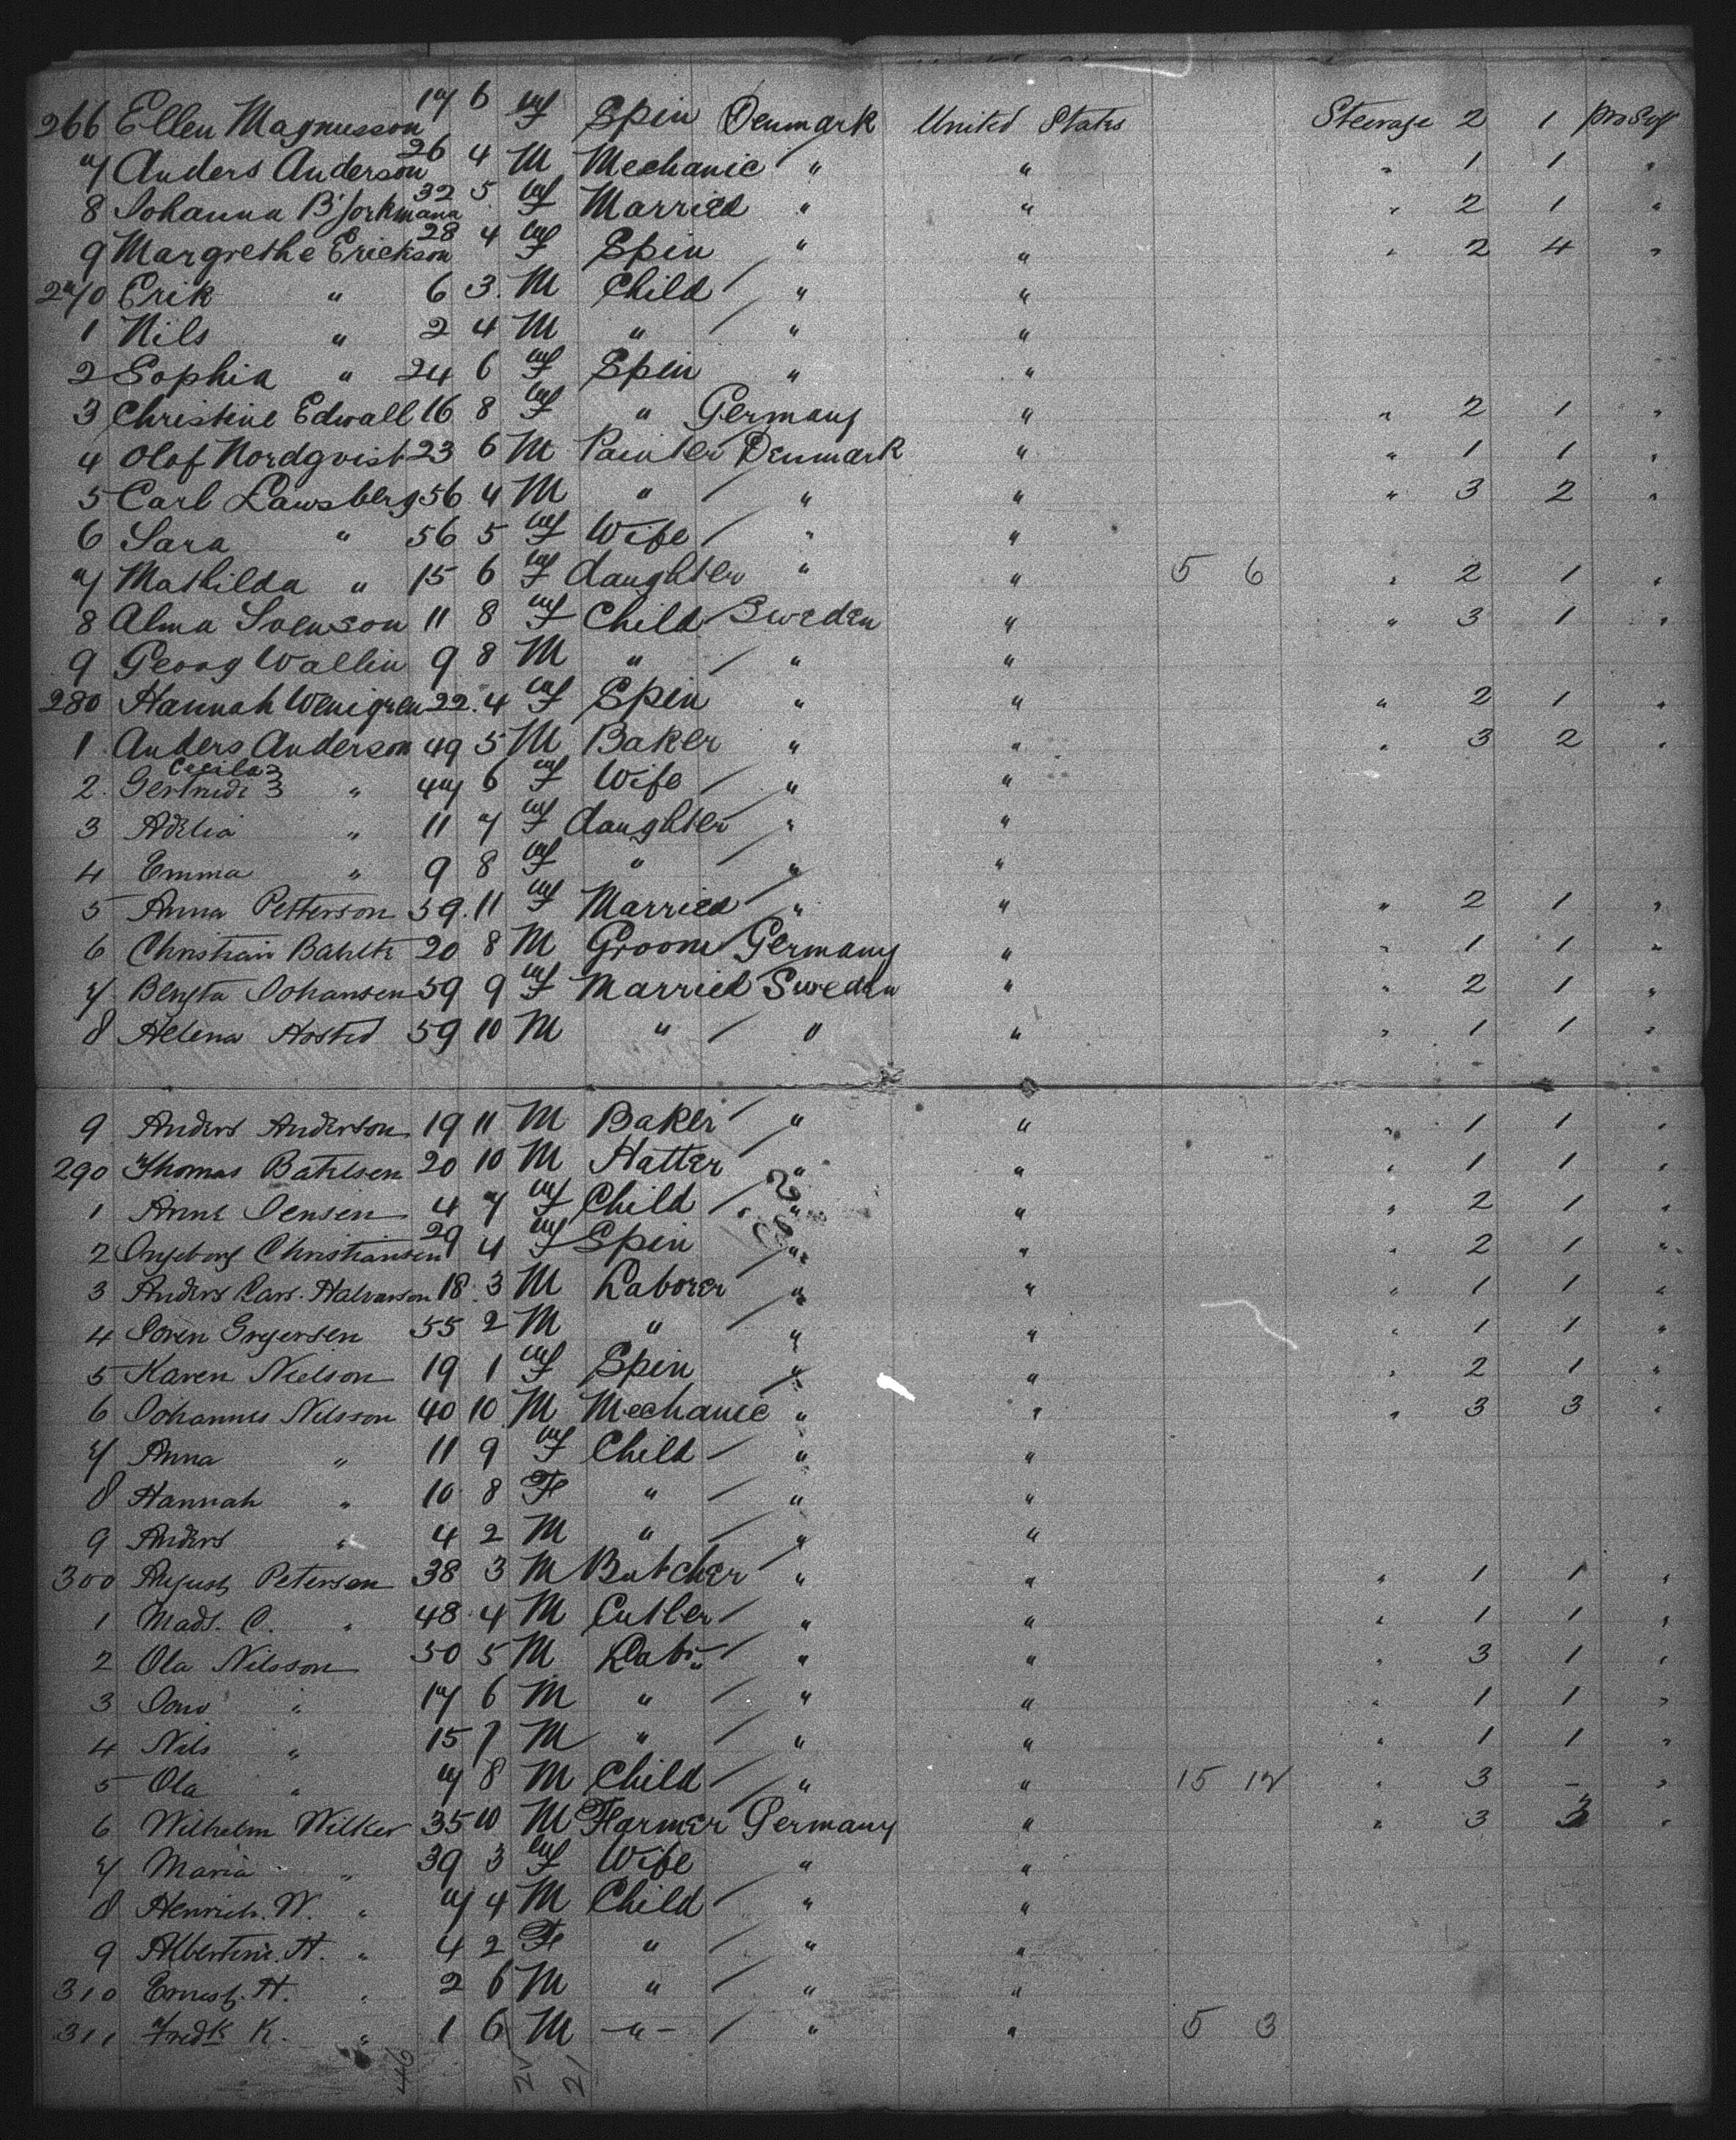 266 Ellen Magnusson 17 6 F Spin Denmark United States Steerage 2 1 pro Suf
7 Anders Anderson 26 4 M Mechanic " " " 1 1 "
8 Johanna Bjorkmana 32 5 F Married " " " 2 1 "
9 Margrethe Erickson 28 4 F Spin " " " 2 4 "
270 Erik " 6 3 M Child " "
1 Nils " 2 4 M " " "
2 Sophia " 24 6 F Spin " "
3 Christine Edwall 16 8 F " Germany " " 2 1 "
4 Olof Nordqvist 23 6 M Painter Denmark " " 1 1 "
5 Carl Lawsberg 56 4 M " " " " 3 2 "
6 Sara " 56 5 F Wife " "
7 Mathilda " 15 6 F daughter " " 5 6 " 2 1 "
8 Alma Svenson 11 8 F Child Sweden " " 3 1 "
9 Georg Wallin 9 8 M " " "
280 Hannah Wenigren 22 4 F Spin " " " 2 1 "
1 Anders Anderson 49 5 M Baker " " " 3 2 "
Cecila
2 Gertrude " 47 6 F Wife " "
3 Adelia " 11 7 F daughter " "
4 Emma " 9 8 F " " "
5 Anna Petterson 59 11 F Married " " " 2 1 "
6 Christian Bahltz 20 8 M Groom Germany " " 1 1 "
7 Bengta Johansen 59 9 F Married Sweden " " 2 1 "
8 Helena Hosted 59 10 M " " " " 1 1 "
9 Anders Anderson 19 11 M Baker " " " 1 1 "
290 Thomas Bahlsen 20 10 M Hatter " " " 1 1 "
1 Anne Jensen 4 7 F Child " " " 2 1 "
2 Ingeborg Christiansen 29 4 F Spin " " " 2 1 "
3 Anders Lars. Halvarson 18 3 M Laborer " " " 1 1 "
4 Soren Gregersen 55 2 M " " " " 1 1 "
5 Karen Nielson 19 1 F Spin " " 2 1 "
6 Johannes Nilsson 40 10 M Mechanic " " " 3 3 "
7 Anna " 11 9 F Child " "
8 Hannah " 10 8 F " " "
9 Anders " 4 2 M " " "
300 August Petersen 38 3 M Butcher " " " 1 1 "
1 Mads. C. " 48 4 M Cutler " " " 1 1 "
2 Ola Nilsson 50 5 M Labr " " " 3 1 "
3 " 17 6 M " " " " 1 1 "
4 Nils " 15 7 M " " " " 1 1 "
5 Ola " 7 8 M Child " " 15 12 " 3 - "
6 Wilhelm Wilker 35 10 M Farmer Germany " " 3 3 "
7 Maria " 39 3 F Wife " "
8 Henrich. W. " 7 4 M Child " "
9 Albertine. H. " 4 2 F " " "
310 Ernest. H. " 2 6 M " " "
311 Fredk K. " 1 6 M -"- " " 5 3
46 21